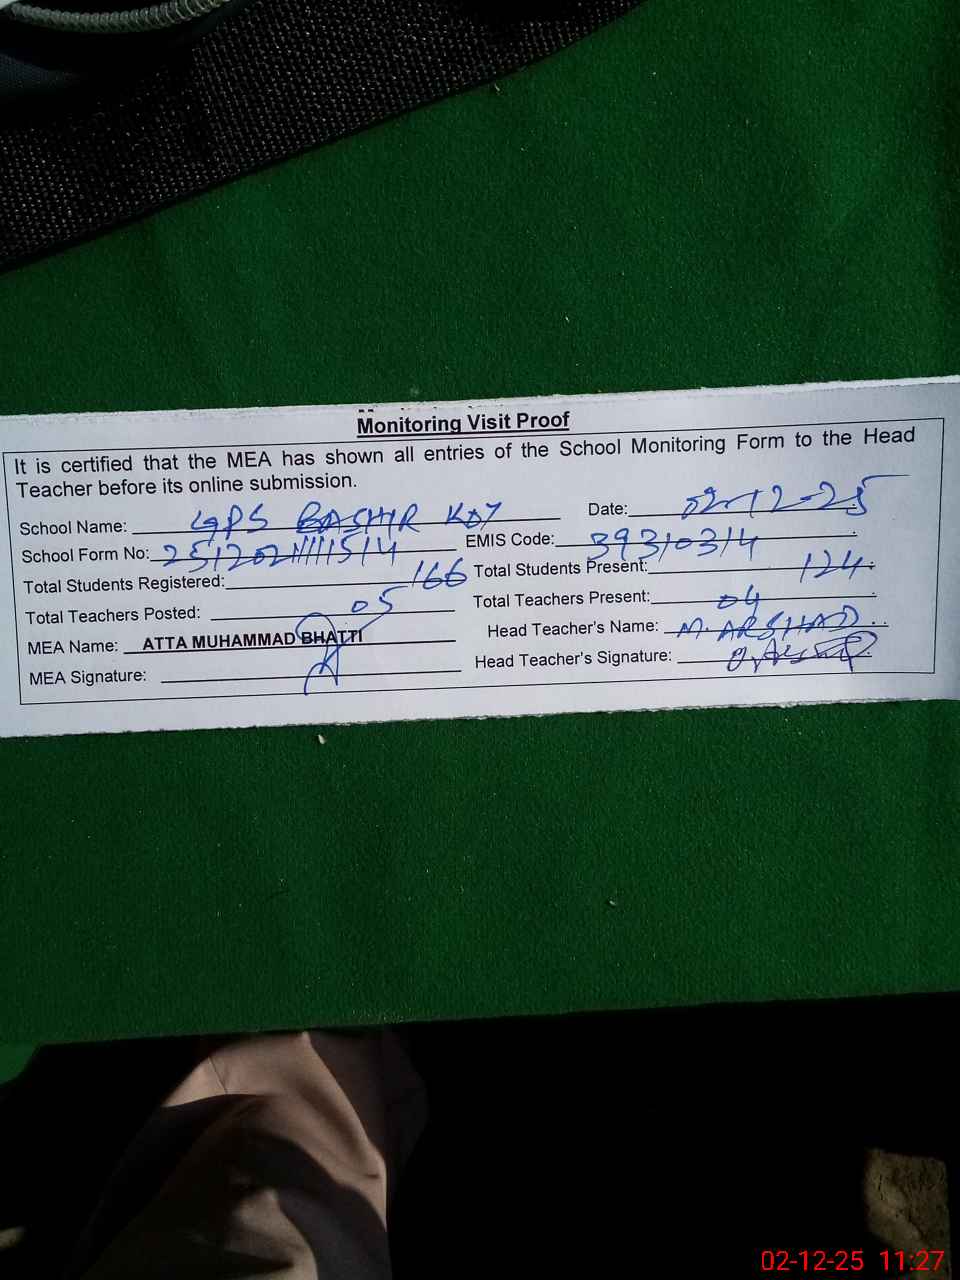 Monitoring Visit Proof
It is certified that the MEA has shown all entries of the School Monitoring Form to the Head
Teacher before its online submission.
School Name: GPS BASHIR KOT Date: 02-12-25
School Form No: EMIS Code: 39310314
Total Students Registered: 166 Total Students Present: 124
Total Teachers Posted: 05 Total Teachers Present: 04
MEA Name: ATTA MUHAMMAD BHATTI Head Teacher's Name: M. ARSHAD
MEA Signature: Head Teacher's Signature:
02-12-25 11:27